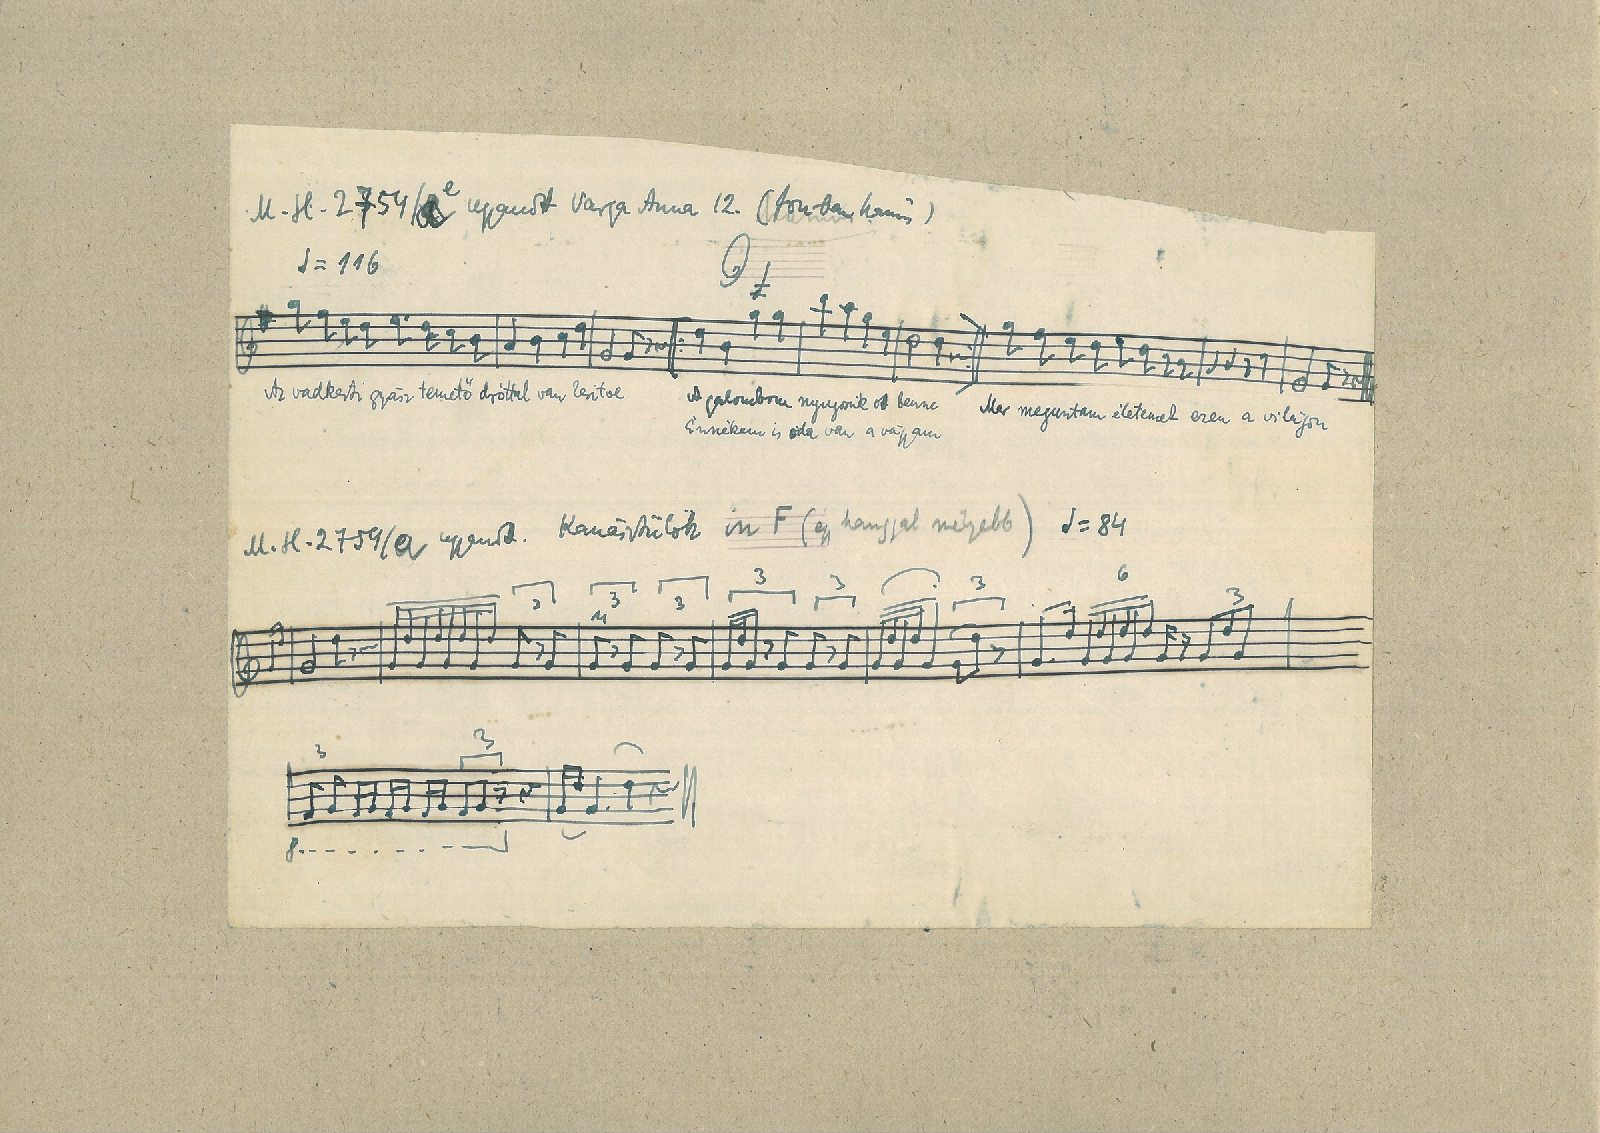 M.-H.-2754/e ugyanott Varga Anna 12.
♩= 116
Az vadkerti gyász temető dróttal van
A galambom nyugszik ott benne
Énnékem is oda van a vágyam
Mer meguntam életemet ezen a világon
M.-H.-2759/a ugyanott. Kanásztülök in F (egy hanggal mélyebb) ♩= 84
3 3 3 3 3 3 6 3
3 3
8